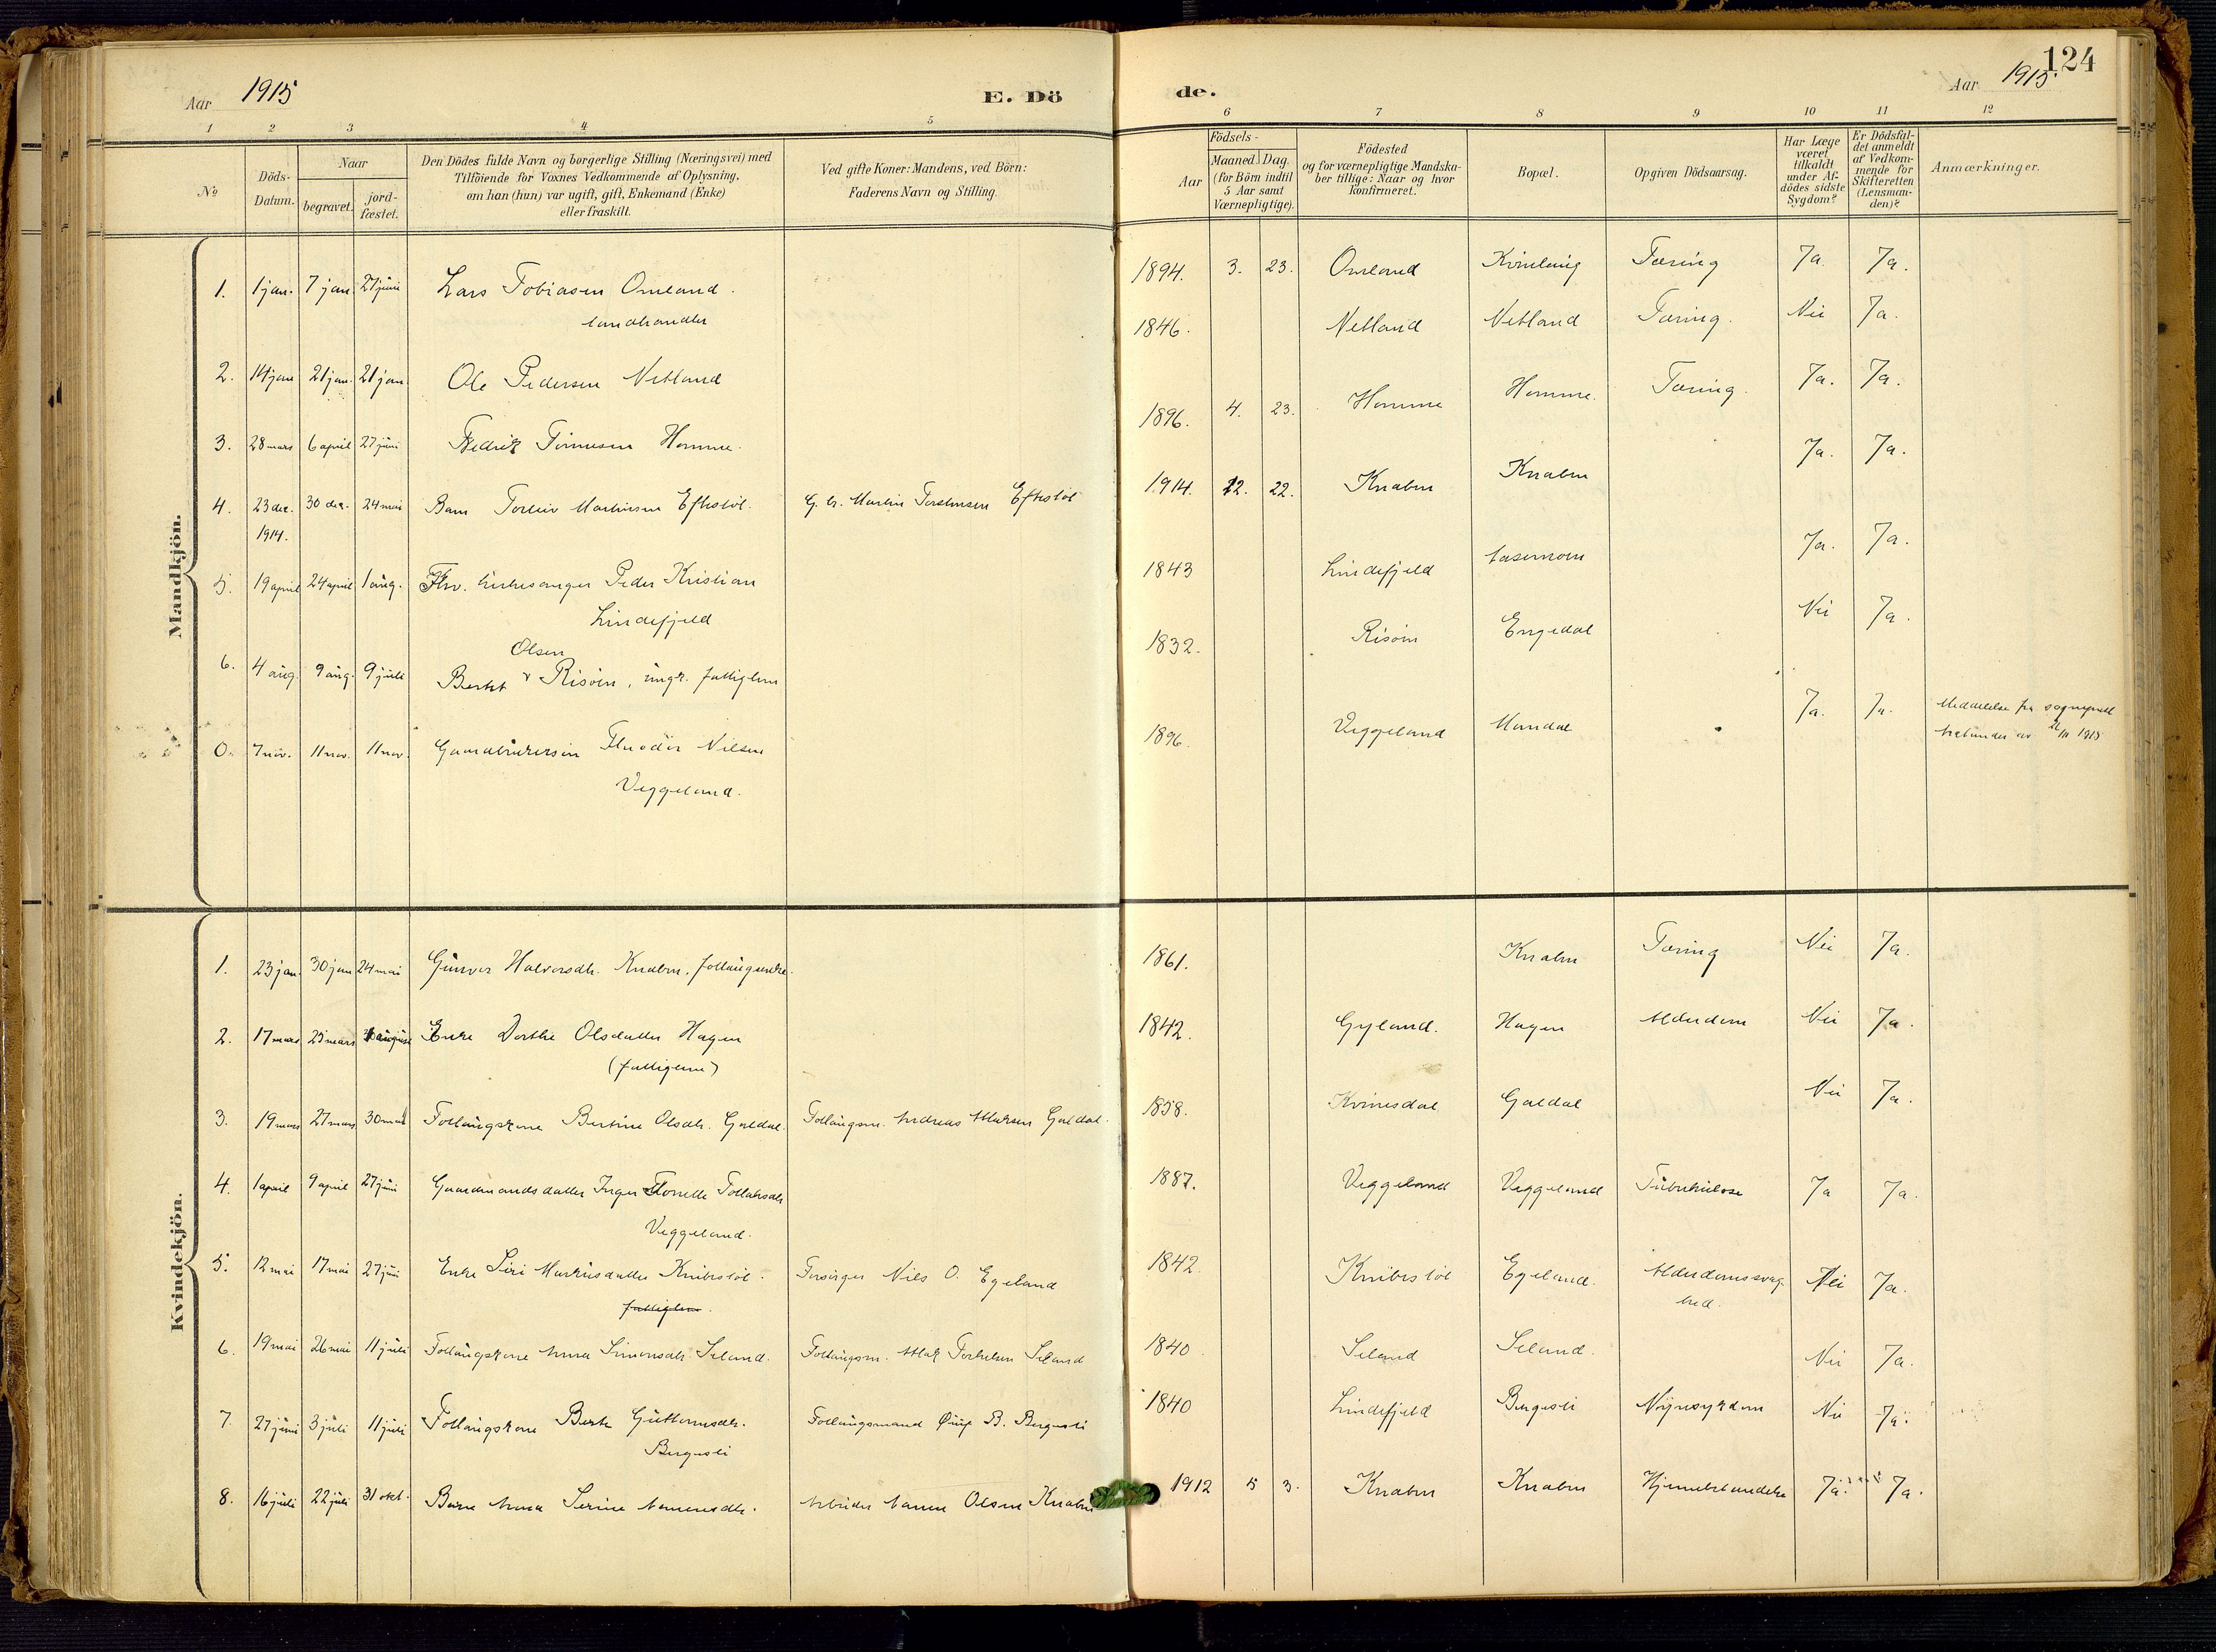 124
Aar 1915
E. Dö
de.
Aar 1915.
1 2 3 4 5 6 7 8 9 10 11 12
No
Döds-
Datum.
Naar
begravet.
jord-
fæstet.
Den Dödes fulde Navn og borgerlige Stilling (Næringsvei) med
Tilföiende for Voxnes Vedkommende af Oplysning,
om han (hun) var ugift, gift, Enkemand (Enke)
eller fraskilt.
Ved gifte Koner: Mandens, ved Börn:
Faderens Navn og Stilling.
Aar
Födsels-
Maaned. Dag.
(for Börn indtil
5 Aar samt
Værnepligtige).
Födested
og for værnepligtige Mandska-
ber tillige: Naar og hvor
konfirmeret.
Bopæl.
Opgiven Dödsaarsag.
Har Læge
været
tilkaldt
under Af-
dödes sidste
Sygdom?
Er Dödsfal-
det anmeldt
af Vedkom-
mende for
Skifteretten
(Lensman-
den)?
Anmærkninger.
Mandkjön.
1. 1 jan. 7 jan. 27 juni Lars Tobiasen Omland. 1894. 3. 23. Omland Kvinlaug Tæring Ja. Ja.
landhandler
2. 14 jan 21 jan. 21 jan Ole Pedersen Netland 1846. Netland Netland Tæring. Nei Ja.
3. 28 mars 6 april 27 juni Fredrik Tønnesen Homme. 1896. 4. 23. Homme Homme. Tæring. Ja. Ja.
4. 23 des. 30 des. 24 mai Barn Torleiv Martinsen Eftestøl. G. br. Martin Torstensen Eftestøl 1914. 12. 22. Knaben Knaben Ja. Ja.
1914.
5. 19 april 24 april 1 aug. Fhv. kirkesanger Peder Kristian 1843 Lindefjeld Ja. Ja.
Lindefjeld
Olsen
6. 4 aug. 9 aug. 9 juli Risøin, ungk. fattiglem 1832. Risøin Engedal Nei Ja.
0. 7 nov. 11 nov. 11 nov. Theodor Nilsen 1896. Veggeland Mandal Ja. Ja. Meddelelse fra sogneprest
Veggeland. 1915
Kvindekjön.
1. 23 jan. 30 jan 24 mai Gunvor Halvorsdtr. Knaben, follaugenke. 1861. Knaben Tæring Nei Ja.
2. 17 mars 25 mars Enke Dorthe Olsdatter Hagen 1842. Gyland. Hagen Alderdom Nei Ja.
(fattiglem)
3. 19 mars 27 mars 30 mai Follaugskone Bertine Olsdtr. Galdal. Follaugsm. Andreas Galdal. 1858. Kvinesdal Galdal Nei Ja.
4. 1 april 9 april 27 juni Gaardmandsdatter Inger Tollaksdtr 1887. Veggeland Veggeland Tuberkulose Ja Ja.
Veggeland.
5. 12 mai 17 mai 27 juni Enke Siri Markusdatter Knibestøl. Forsørger Niels O. Egeland 1842. Knibestøl Egeland. Alderdomssvag-
hed. Nei Ja.
fattiglem.
6. 19 mai 26 mai 11 juli Follaugskone Anna Simonsdtr Seland. Follaugsm. Seland 1840. Seland Seland. Nei Ja.
7. 27 juni 3 juli 11 juli Follaugskone Berte Guttormsdtr. Follaugsmand B. Bergesli 1840 Lindefjeld Bergesli Nyresygdom Nei Ja.
Bergesli
8. 16 juli 22 juli 31 okt. Barn Anna Serine Aanensdtr. Arbeider Aanen Olsen Knaben 1912 5 3. Knaben Knaben Hjernebetændelse Ja. Ja.